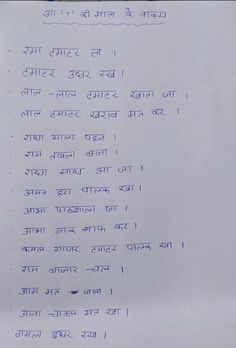 आ (ा) की मात्रा के वाक्य
रमा टमाटर ला ।
टमाटर उधर रख ।
लाल - लाल टमाटर खाना जा ।
लाल टमाटर खराब मत कर ।
राधा माला पहन ।
राम तबला बजा ।
राधा साथ आ जा ।
अमन हरा पालक खा ।
आभा पाठशाला जा ।
आभा नाक साफ कर ।
कमल गाजर टमाटर पालक खा ।
राम बाजार चल ।
आग मत जला ।
आना चावल मत खा ।
गमला इधर रख ।